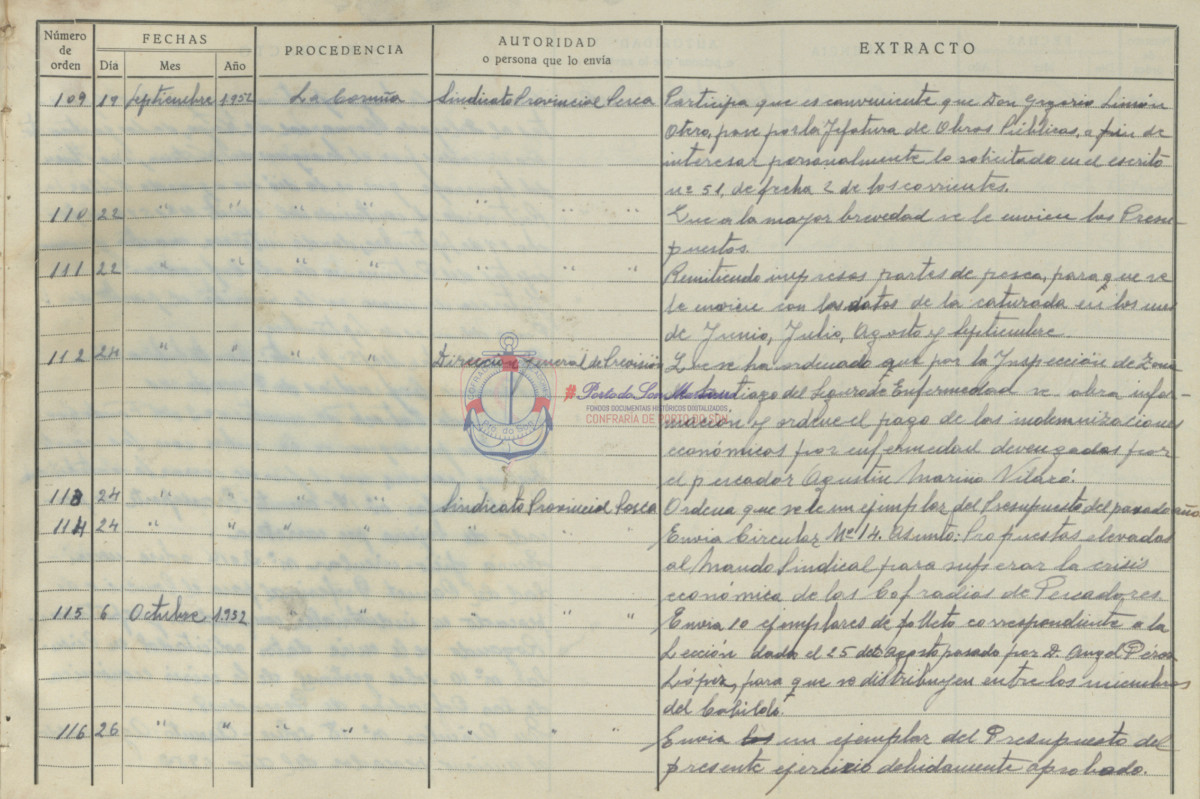 Número de orden FECHAS PROCEDENCIA AUTORIDAD o persona que lo envía EXTRACTO
Día Mes Año
109 19 Septiembre 1952 La Coruña Sindicato Provincial Pesca Participa que es conveniente que Don Grgorio Limón
Otero, pase por la Jefatura de Obras Públicas, a fin de
interesar personalmente lo solicitado en el escrito
nº 51, de fecha 2 de los corrientes.
110 22 " " " " " " Que a la mayor brevedad se le envien los Presu-
puestos.
111 22 " " " " " " Remitiendo impresos partes de pesca, para que se
le enviene con los datos de la caturada en los mes
de Junio, Julio, Agosto y Septiembre.
112 24 " " " " Dirección General de Previsión Que se ha ordenado que por la Inspección de Zona
del Seguro de Enfermedad se abra infor-
mación y ordene el pago de las indemnizaciones
económicos por enfermedad devengadas por
el pescador Agustín Mariño Vilaró.
113 24 " " " " Sindicato Provincial Pesca Ordena que se le un ejemplar del Presupuesto del pasado año
114 24 " " " " " " Envia Circular Nº 14. Asunto: Propuestas elevadas
al Mando Sindical para superar la crisis
económica de las Cofradías de Pescadores.
115 6 Octubre 1952 " " " " Envia 10 ejemplares de folleto correspondiente a la
Lección dada el 25 de Agosto pasado por D. Angel Pérez
López, para que se distribuyen entre los miembros
del Cabildo.
116 26 " " " " " " Envia un ejemplar del Presupuesto del
presente ejercicio debidamente aprobado.
#Porto do Son
FONDOS DOCUMENTAIS HISTÓRICOS DIGITALIZADOS
CONFRARÍA DE PORTO DO SON